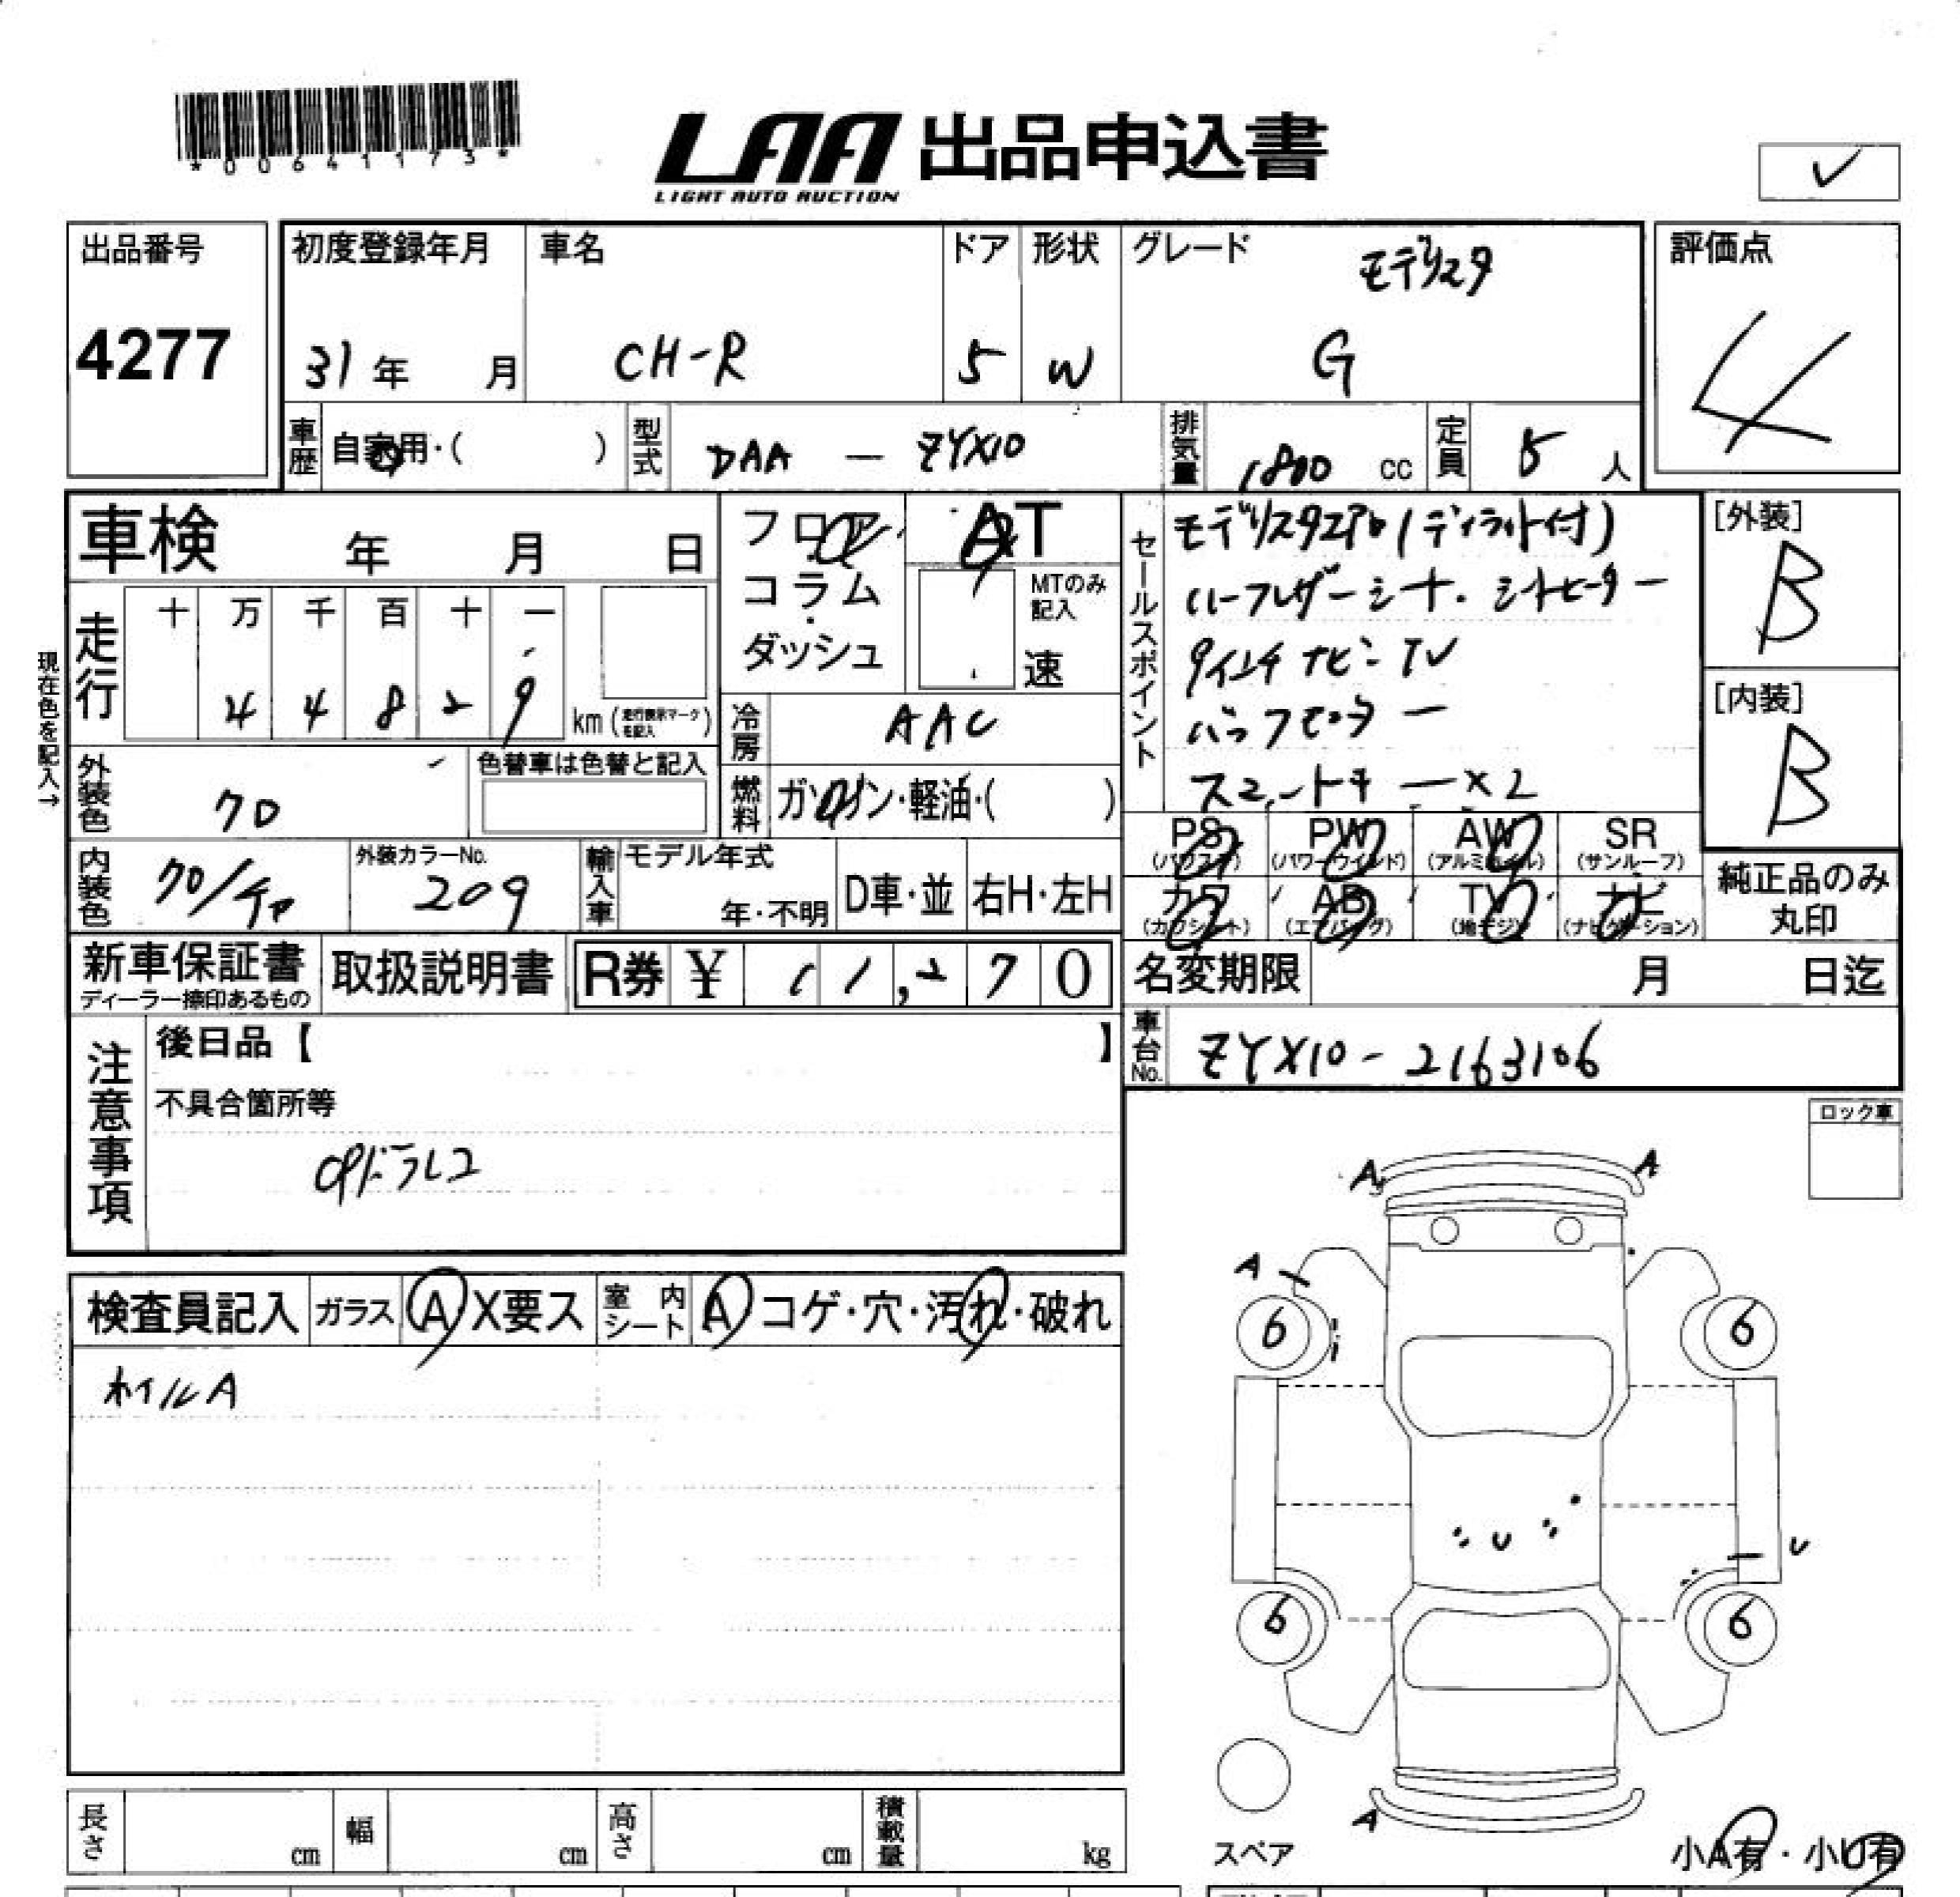 *00641173*
LAA 出品申込書
LIGHT AUTO AUCTION
出品番号
4277
初度登録年月
31年 月
車名
CH-R
ドア
5
形状
W
グレード
モデリスタ
G
評価点
4
車歴 自家用・( )
型式 DAA — ZYX10
排気量 1800 cc
定員 5 人
車検 年 月 日
フロア
コラム
ダッシュ
AT
MTのみ記入
速
セールスポイント
モデリスタエアロ(デイライト付)
ハーフレザーシート.シートヒーター
9インチナビ・TV
バックモニター
スマートキー×2
[外装]
B
[内装]
B
現在色を記入→
走行
十 万 千 百 十 一
4 4 8 2 9
km (走行表示マークを記入)
冷房 AAC
外装色 クロ
色替車は色替と記入
燃料 ガソリン・軽油・( )
PS (パワステ)
PW (パワーウインド)
AW (アルミホイル)
SR (サンルーフ)
カワ (カワシート)
AB (エアバッグ)
TV (地デジ)
ナビ (ナビゲーション)
純正品のみ丸印
内装色 クロ/チャ
外装カラーNo. 209
輸入車 モデル年式
年・不明
D車・並
右H・左H
新車保証書
ディーラー捺印あるもの
取扱説明書
R券 ¥ 11,270
名変期限 月 日迄
車台No. ZYX10-2163106
注意事項
後日品【 】
不具合箇所等
CPドラレコ
ロック車
検査員記入
ガラス A X要ス
室内シート A コゲ・穴・汚れ・破れ
ホイルA
A A
A
6 6
U U
6 6
A
スペア
小A有・小U有
長さ cm
幅 cm
高さ cm
積載量 kg